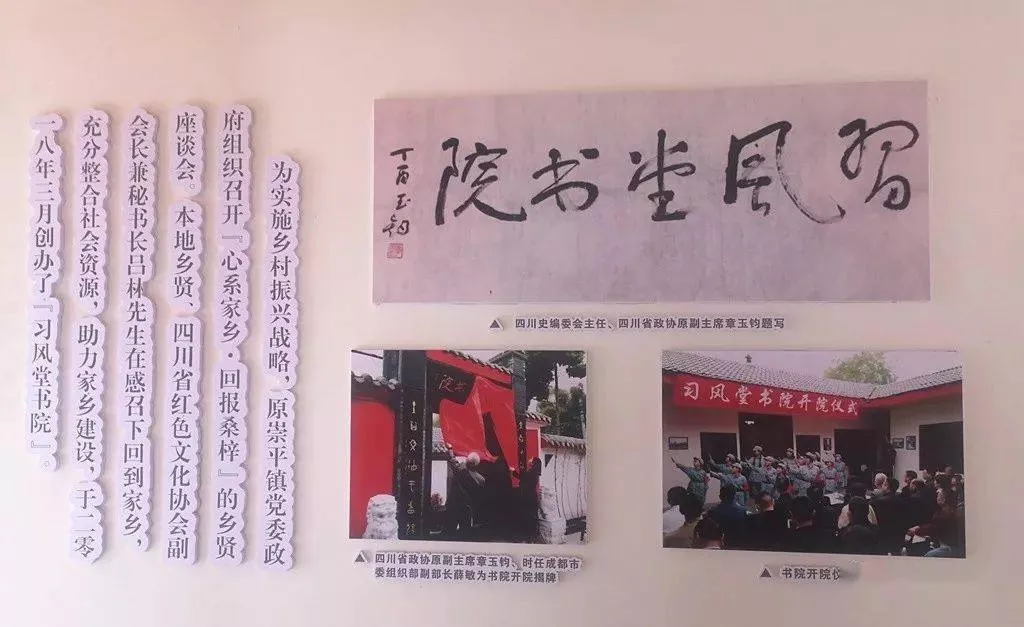 为实施乡村振兴战略，原崇平镇党委政
府组织召开『心系家乡·回报桑梓』的乡贤
座谈会。本地乡贤、四川省红色文化协会副
会长兼秘书长吕林先生在感召下回到家乡，
充分整合社会资源，助力家乡建设，于二零
一八年三月创办了『习风堂书院』。
習風堂书院
丁酉玉钧
▲ 四川史编委会主任、四川省政协原副主席章玉钧题写
书院
▲ 四川省政协原副主席章玉钧、时任成都市
委组织部副部长薛敏为书院开院揭牌
习风堂书院开院仪式
▲ 书院开院仪